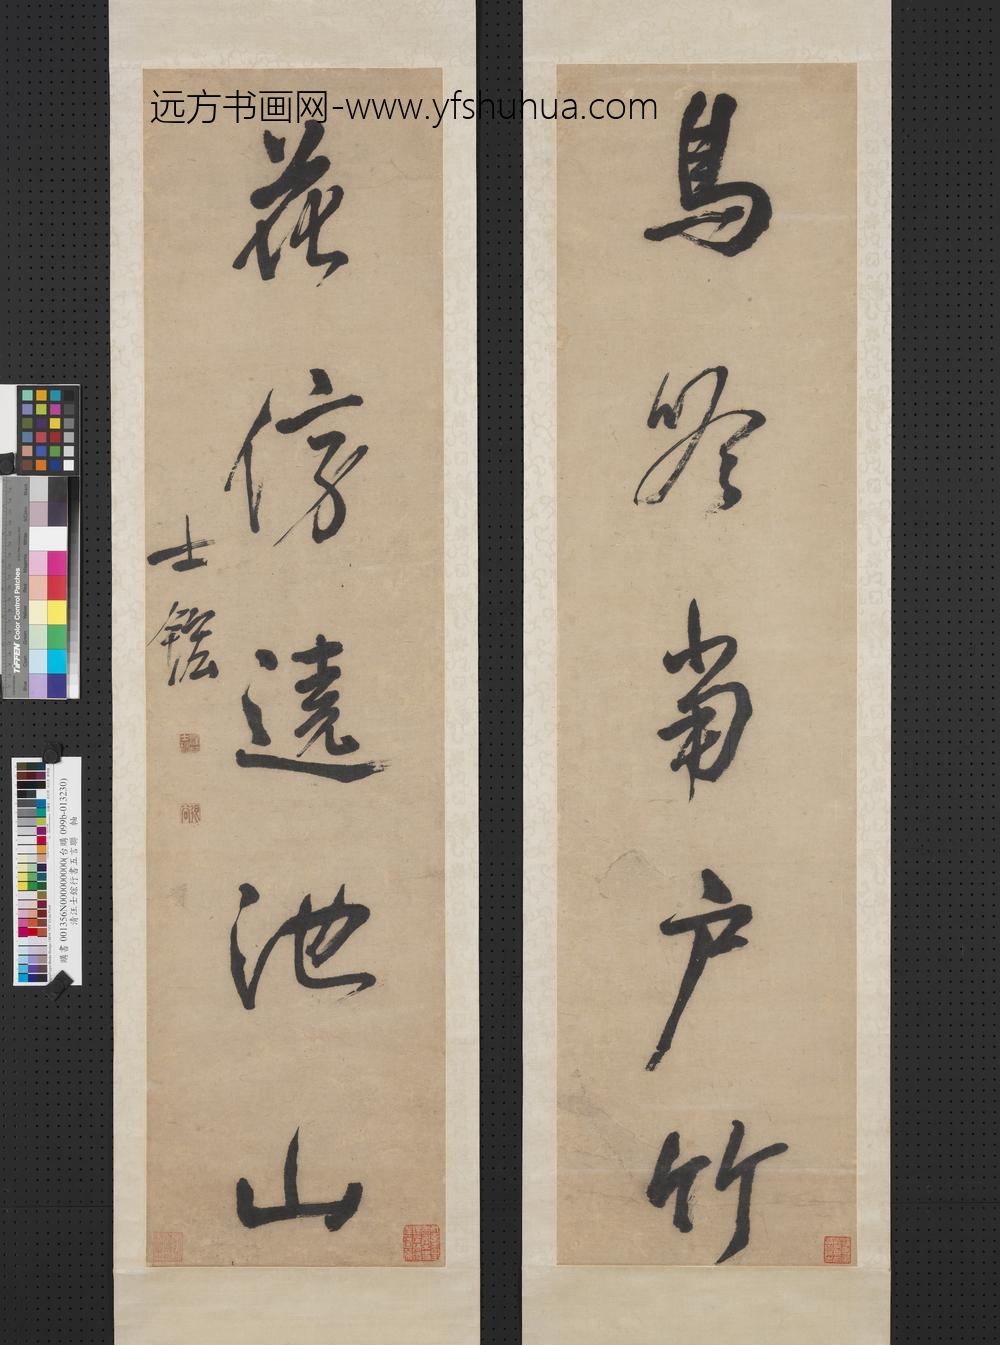 远方书画网-www.yfshuhua.com
鳥吟當户竹
花傍遶池山
士鋐
購書 001356N000000000(台購 099b-013230)
清汪士鋐行書五言聯 軸
TIFFEN Color Control Patches